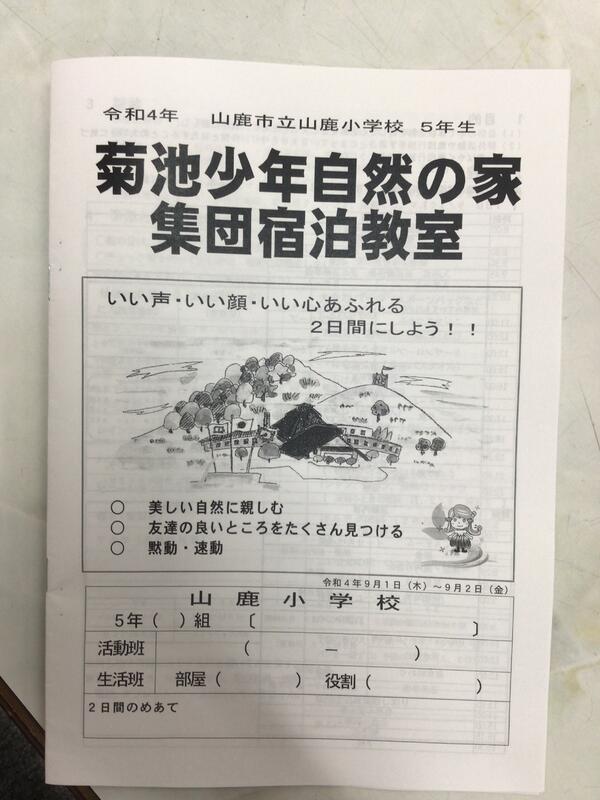 令和4年 山鹿市立山鹿小学校 5年生
菊池少年自然の家
集団宿泊教室
いい声・いい顔・いい心あふれる
2日間にしよう！！
○ 美しい自然に親しむ
○ 友達の良いところをたくさん見つける
○ 黙動・速動
令和4年9月1日（木）～9月2日（金）
山鹿小学校
5年（ ）組 〔 〕
活動班 （ － ）
生活班 部屋（ ） 役割（ ）
2日間のめあて